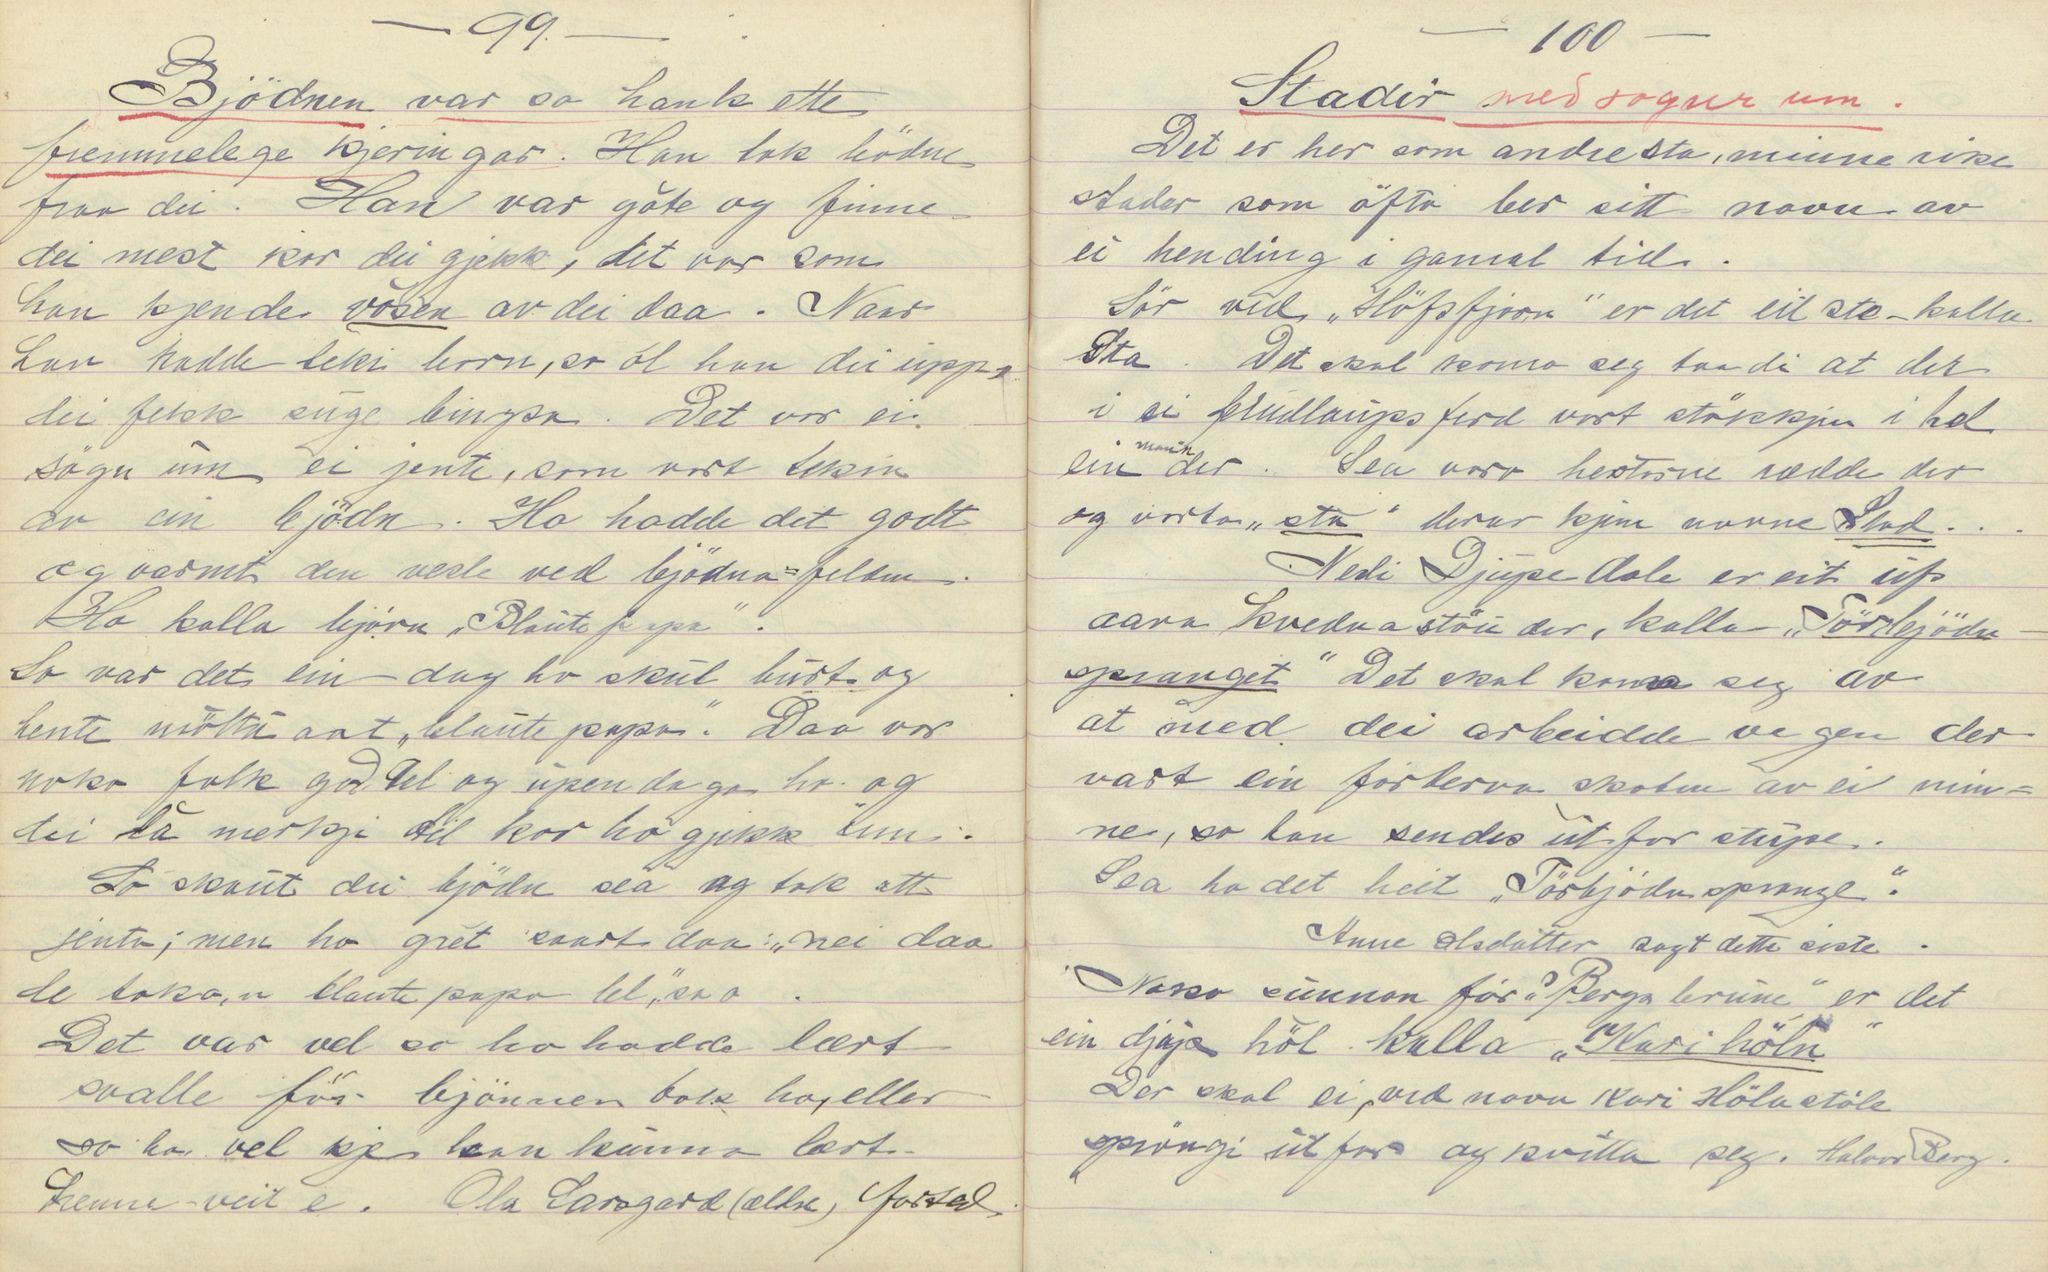 — 99. —
Bjödnen var so hank ette
fremmelege kjeringar. Han tok bödne
fraa dei. Han var göte og finne
dei mest kor dei gjekk, det var som
han kjende vösen av dei daa. Naar
han hadde teki born, so ól han dei upp,
dei fekk suge bingsa. Det var ei
sögn um ei jente, som vart tekin
av ein bjödn. Ho hadde det godt
og varmt den vesle ved bjödna-felden.
Ho kalla bjórn „Blaute papa".
So var det ein dag ho skul burt og
hente möttú aat „blaute papa". Daa var
noko folk god tel og úpendaga ho og
dei la merkji til kor ho gjekk inn.
So skaut dei bjödn sea og tok att
jenta; men ho grét saart daa: „nei daa
de toka, n blaute papa tel", sa o.
Det var vel so ho hadde lært
svalle för bjönnen tok ho, eller
so ho vel kje han kunna lært
henne - veit e. Ola Larsgard (eldre) fortal.
— 100 —
Stadir med sogur um.
Det er her som andre sta, minnerike
stader som öfta ber sitt navn av
ei hending i gamal tid.
Sör ved „Höfsfjorn" er det eit ste - kalla
Sta. Det skal koma seg taa di at der
i ei brudlaups ferd vart stökkjen i hel
ein mann der. Sea vara hestane rædde der
og varta „sta" derav kjem navne Stad...
Nedi Djupedale er eit úp
aara kvedna stöú der, kalla „Törbjödn-
spranget" Det skal koma seg av
at med dei arbeidde vegen der
vart ein Törbern skoten av ei min=
ne, so han sendes út for stúpe.
Sea ha det heit „Törbjödnsprange".
Anne Olsdatter sagt dette siste.
Noko sunnan för „Berga brune" er det
ein djúp höl kalla „Kari höln"
Der skal ei, ved navn Kari Hölastöle
spröngi út for og kvitta seg. Halvor Berg.